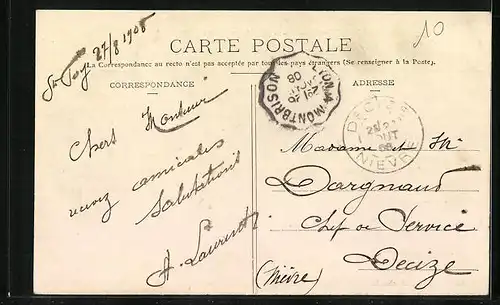 St Foy 27/8 1908
10
CARTE POSTALE
La Correspondance au recto n'est pas acceptée par tous les pays étrangers (Se renseigner à la Poste).
CORRESPONDANCE
ADRESSE
LYON A MONTBRISON
08
DECIZE
28
AOUT
08
NIEVRE
Chers
recevez amicales
Salutations
A. Laurent
Madame et Mr
Dargnaud
Chef de Service
Decize
(Nièvre)